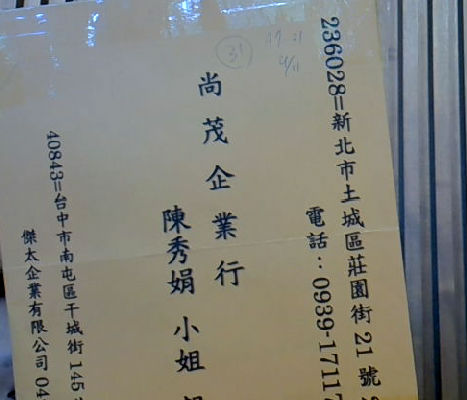 236028=新北市土城區莊園街 21 號
電話：0939-17117
尚茂企業行
陳秀娟 小姐
40843=台中市南屯區干城街 145
傑太企業有限公司 04
31